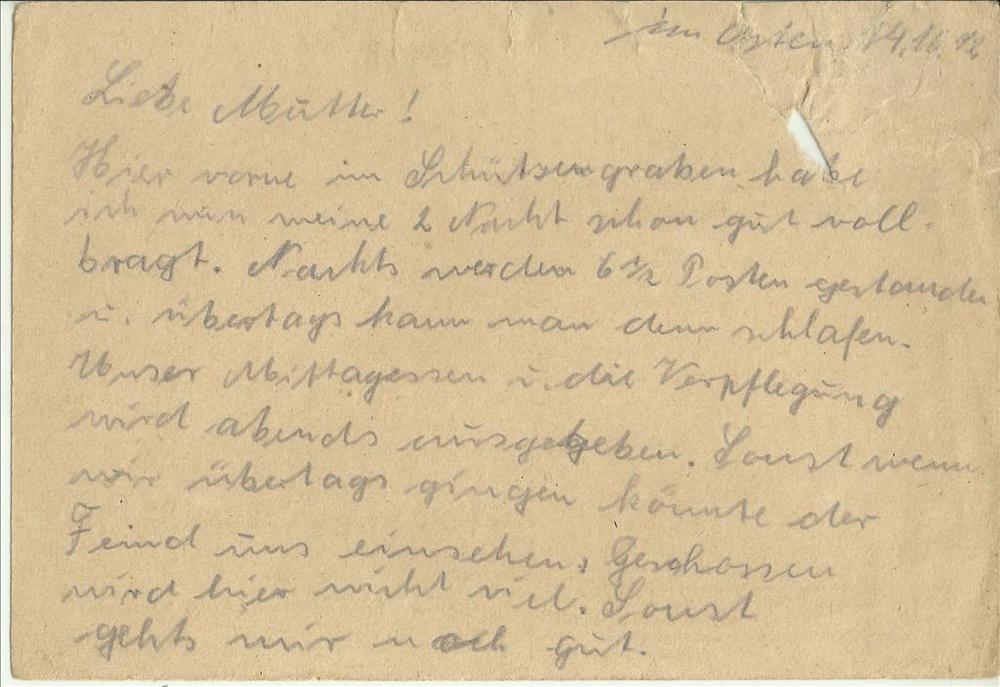 Im Osten, 14.11.42
Liebe Mutter!
Hier vorne im Schützengraben habe
ich nun meine 2 Nacht schon gut voll-
bragt. Nachts werden 6 1/2 Posten gestanden
u. übertags kann man denn schlafen.
Unser Mittagessen u. die Verpflegung
wird abends ausgegeben. Sonst wenn
wir übertags gingen könnte der
Feind uns einsehen. Geschossen
wird hier nicht viel. Sonst
gehts mir noch gut.